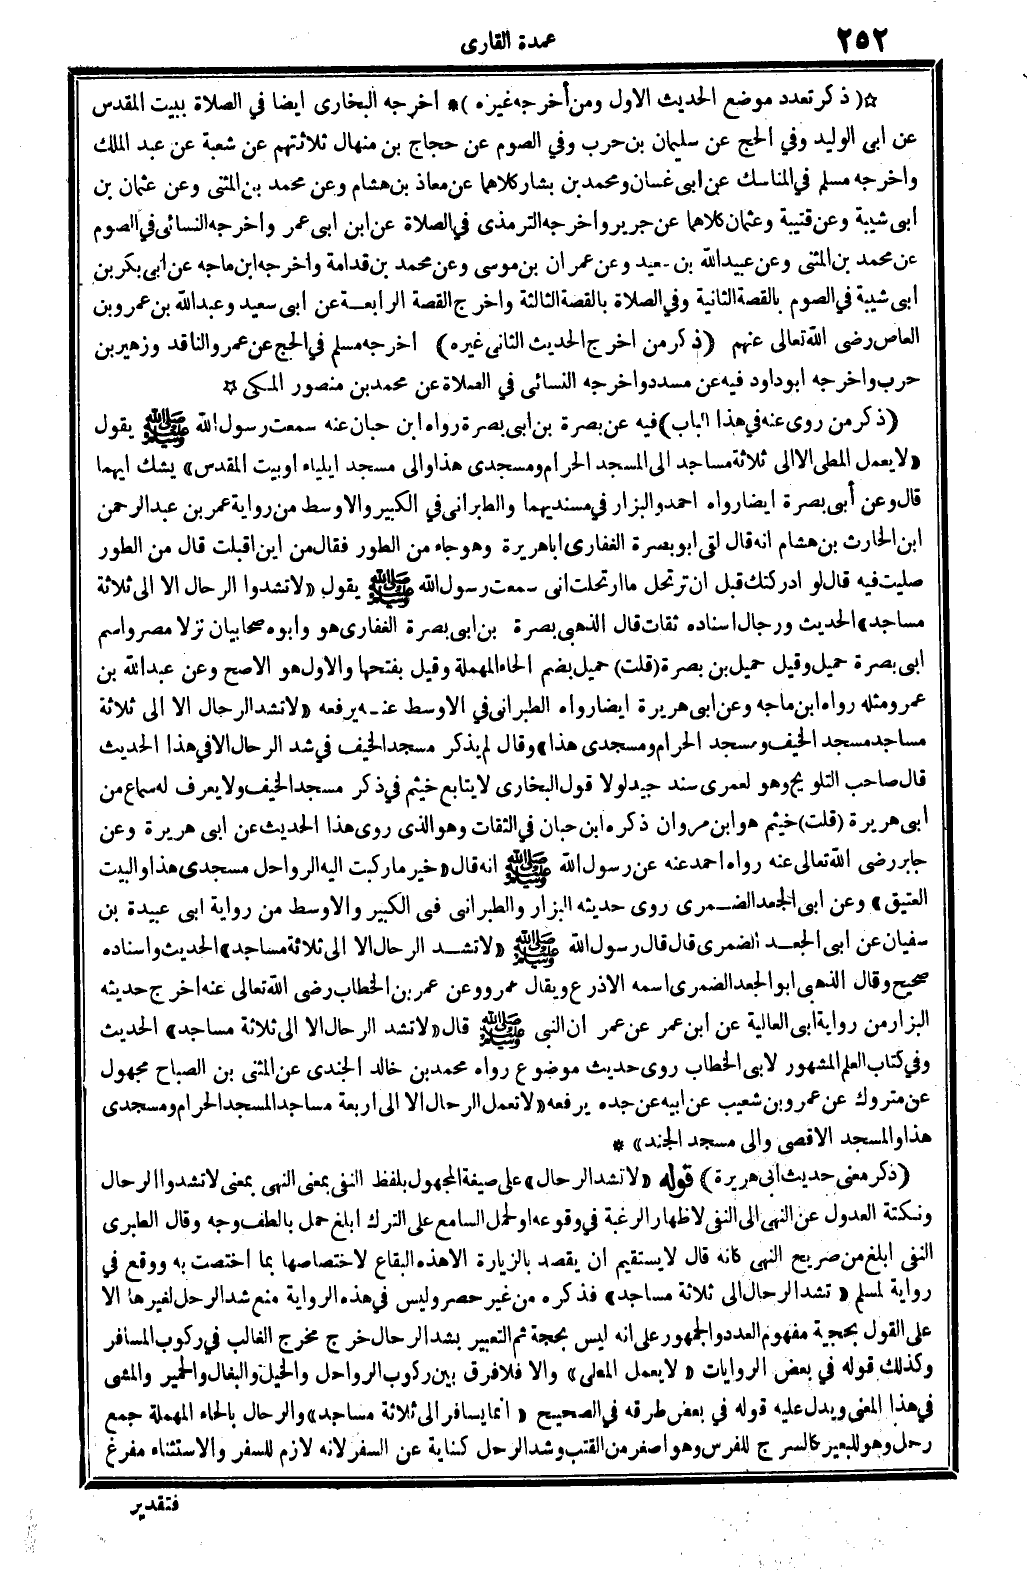 ٢٥٢
عمدة القارى
☆( ذكر تعدد موضع الحديث الاول ومن أخرجه غيره )* اخرجه البخارى ايضا في الصلاة ببيت المقدس
عن ابى الوليد وفي الحج عن سليمان بن حرب وفي الصوم عن حجاج بن منهال ثلاثتهم عن شعبة عن عبد الملك
واخرجه مسلم في المناسك عن ابى غسان ومحمد بن بشار كلاهما عن معاذ بن هشام وعن محمد بن المثنى وعن عثمان بن
ابى شيبة وعن قتيبة وعثمان كلاهما عن جرير واخرجه الترمذى في الصلاة عن ابن ابى عمر واخرجه النسائى في الصوم
عن محمد بن المثنى وعن عبيدالله بن سعيد وعن عمران بن موسى وعن محمد بن قدامة واخرجه ابن ماجه عن ابى بكر بن
ابى شيبة في الصوم بالقصة الثانية وفي الصلاة بالقصة الثالثة واخرج القصة الرابعة عن ابى سعيد وعبدالله بن عمرو بن
العاص رضى الله تعالى عنهم (ذكر من اخرج الحديث الثانى غيره) اخرجه مسلم في الحج عن عمرو الناقد وزهير بن
حرب واخرجه ابو داود فيه عن مسدد واخرجه النسائى في الصلاة عن محمد بن منصور المكى ☆
(ذكر من روى عنه في هذا الباب) فيه عن بصرة بن ابى بصرة رواه ابن حبان عنه سمعت رسول الله ﷺ يقول
«لا يعمل المطى الا الى ثلاثة مساجد الى المسجد الحرام ومسجدى هذا والى مسجد ايلياء او بيت المقدس» يشك ايهما
قال وعن أبى بصرة ايضا رواه احمد والبزار في مسنديهما والطبرانى في الكبير والاوسط من رواية عمر بن عبد الرحمن
ابن الحارث بن هشام انه قال لقى ابو بصرة الغفارى اباهريرة وهو جاء من الطور فقال من اين اقبلت قال من الطور
صليت فيه قال لو ادركتك قبل ان ترتحل ما ارتحلت انى سمعت رسول الله ﷺ يقول «لا تشدوا الرحال الا الى ثلاثة
مساجد» الحديث ورجال اسناده ثقات قال الذهبى بصرة بن ابى بصرة الغفارى هو وابوه صحابيان نزلا مصر واسم
ابى بصرة حميل وقيل حميل بن بصرة (قلت) حميل بضم الحاء المهملة وقيل بفتحها والاول هو الاصح وعن عبدالله بن
عمرو مثله رواه ابن ماجه وعن ابى هريرة ايضا رواه الطبرانى في الاوسط عنه يرفعه «لا تشد الرحال الا الى ثلاثة
مساجد مسجد الخيف ومسجد الحرام ومسجدى هذا» وقال لم يذكر مسجد الخيف في شد الرحال الا في هذا الحديث
قال صاحب التلويح وهو لعمرى سند جيد لولا قول البخارى لا يتابع خيثم في ذكر مسجد الخيف ولا يعرف له سماع من
أبى هريرة (قلت) خيثم هو ابن مروان ذكره ابن حبان في الثقات وهو الذى روى هذا الحديث عن ابى هريرة وعن
جابر رضى الله تعالى عنه رواه احمد عنه عن رسول الله ﷺ انه قال «خير ما ركبت اليه الرواحل مسجدى هذا والبيت
العتيق» وعن ابى الجعد الضمرى روى حديثه البزار والطبرانى فى الكبير والاوسط من رواية ابى عبيدة بن
سفيان عن ابى الجعد الضمرى قال قال رسول الله ﷺ «لا تشد الرحال الا الى ثلاثة مساجد» الحديث واسناده
صحيح وقال الذهبى ابو الجعد الضمرى اسمه الاذرع ويقال عمرو وعن عمر بن الخطاب رضى الله تعالى عنه اخرج حديثه
البزار من رواية ابى العالية عن ابن عمر عن عمر ان النبى ﷺ قال «لا تشد الرحال الا الى ثلاثة مساجد» الحديث
وفي كتاب العلم المشهور لابى الخطاب روى حديث موضوع رواه محمد بن خالد الجندى عن المثنى بن الصباح مجهول
عن متروك عن عمرو بن شعيب عن ابيه عن جده يرفعه «لا تعمل الرحال الا الى اربعة مساجد المسجد الحرام ومسجدى
هذا والمسجد الاقصى والى مسجد الجند» *
(ذكر معنى حديث ابى هريرة) قوله «لا تشد الرحال» على صيغة المجهول بلفظ النفى بمعنى النهى بمعنى لا تشدوا الرحال
ونكتة العدول عن النهى الى النفى لاظهار الرغبة في وقوعه او لحمل السامع على الترك ابلغ حمل بالطف وجه وقال الطبرى
النفى ابلغ من صريح النهى كانه قال لا يستقيم ان يقصد بالزيارة الا هذه البقاع لاختصاصها بما اختصت به ووقع في
رواية لمسلم «تشد الرحال الى ثلاثة مساجد» فذكره من غير حصر وليس في هذه الرواية منع شد الرحل لغيرها الا
على القول بحجية مفهوم العدد والجمهور على انه ليس بحجة ثم التعبير بشد الرحال خرج مخرج الغالب في ركوب المسافر
وكذلك قوله في بعض الروايات «لا يعمل المطى» والا فلا فرق بين ركوب الرواحل والخيل والبغال والحمير والمشى
في هذا المعنى ويدل عليه قوله في بعض طرقه في الصحيح «انما يسافر الى ثلاثة مساجد» والرحال بالحاء المهملة جمع
رحل وهو للبعير كالسرج للفرس وهو اصغر من القتب وشد الرحل كناية عن السفر لانه لازم للسفر والاستثناء مفرغ
فتقدير